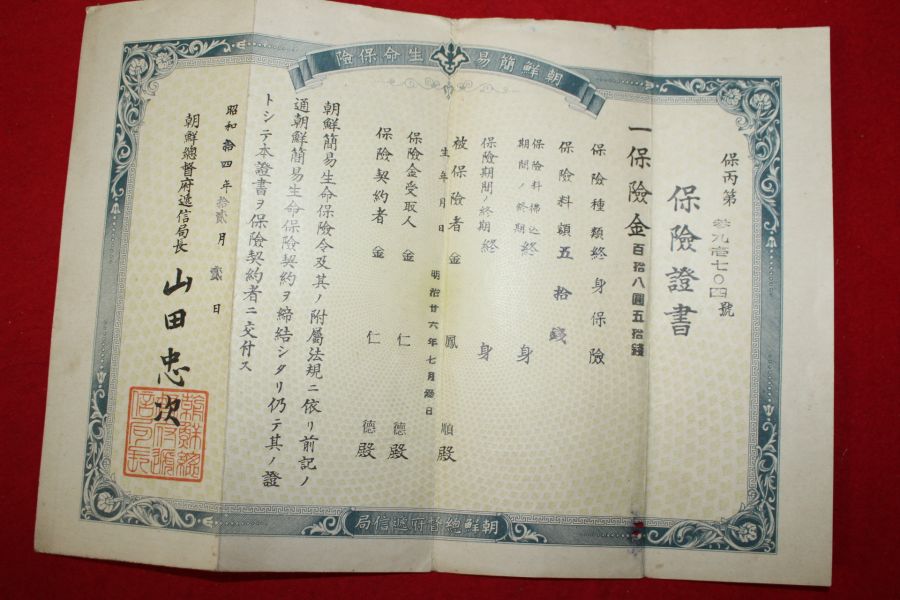 朝鮮簡易生命保險
保丙第 參九壱七〇四號
保險證書
一保險金百拾八圓五拾錢
保險種類終身保險
保險料額五拾錢
保險料拂込期間ノ終期 終身
保險期間ノ終期 終身
被保險者 金鳳順殿
生年月日 明治廿六年七月 日
保險金受取人 金仁德殿
保險契約者 金仁德殿
朝鮮簡易生命保險令及其ノ附屬法規ニ依リ前記ノ
通朝鮮簡易生命保險契約ヲ締結シタリ仍テ其ノ證
トシテ本證書ヲ保險契約者ニ交付ス
昭和拾四年拾貳月 日
朝鮮總督府遞信局長 山田忠次
朝鮮總督府遞信局長
朝鮮總督府遞信局